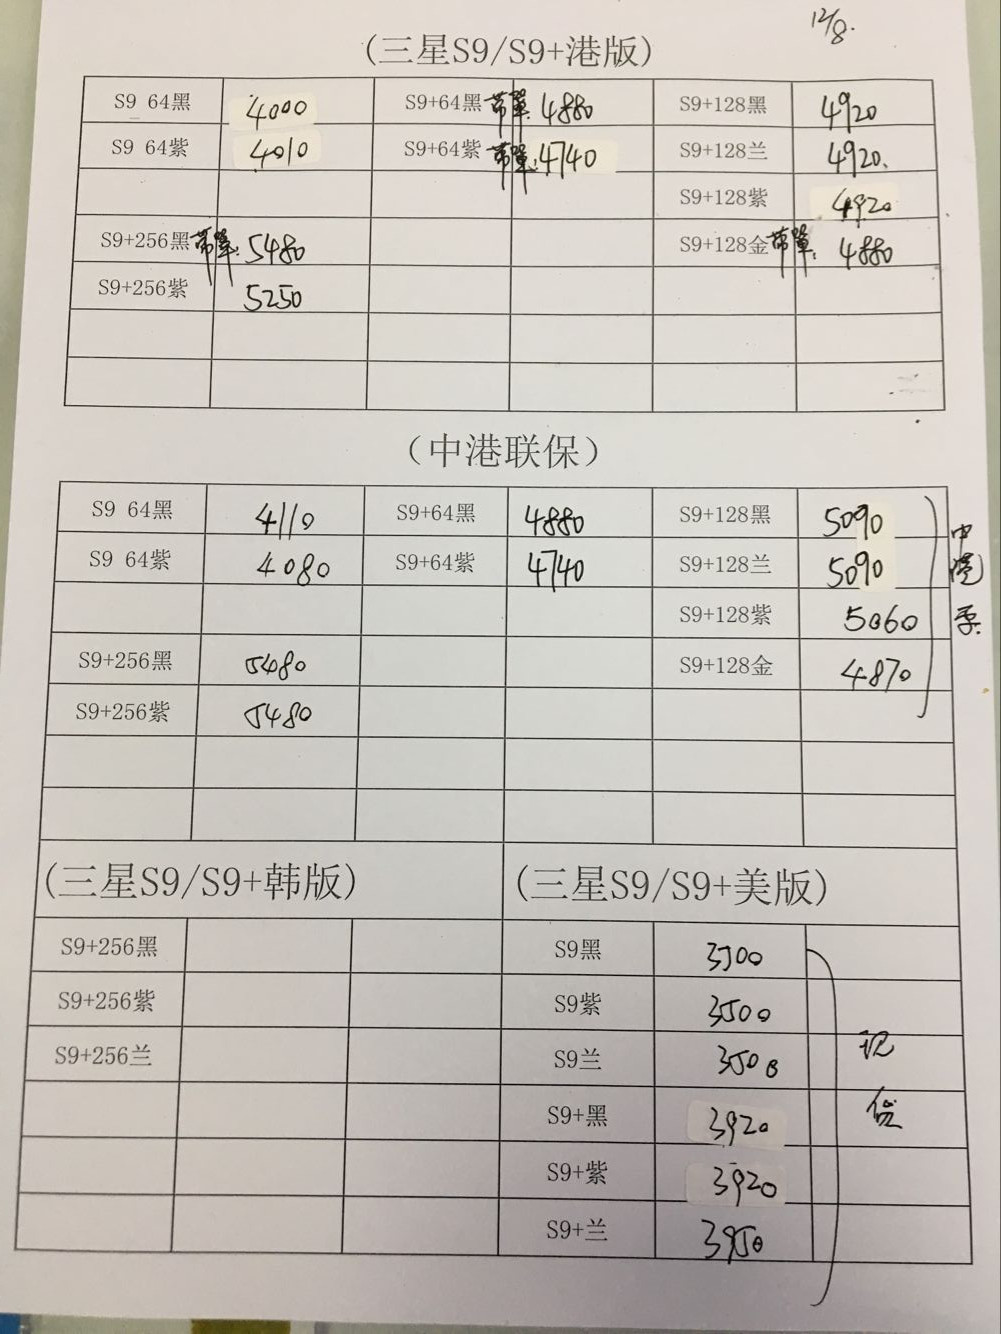 12/8.
(三星S9/S9+港版)
S9 64黑 4000 S9+64黑 带单: 4880 S9+128黑 4920
S9 64紫 4010 S9+64紫 带单: 4740 S9+128兰 4920.
S9+128紫 4920
S9+256黑 带单: 5480 S9+128金 带单: 4880
S9+256紫 5250
(中港联保)
S9 64黑 4110 S9+64黑 4880 S9+128黑 5090
S9 64紫 4080 S9+64紫 4740 S9+128兰 5090
S9+128紫 5060
S9+256黑 5480 S9+128金 4870
S9+256紫 5480
中港
(三星S9/S9+韩版) (三星S9/S9+美版)
S9+256黑 S9黑 3500
S9+256紫 S9紫 3500
S9+256兰 S9兰 3500
S9+黑 3920
S9+紫 3920
S9+兰 3950